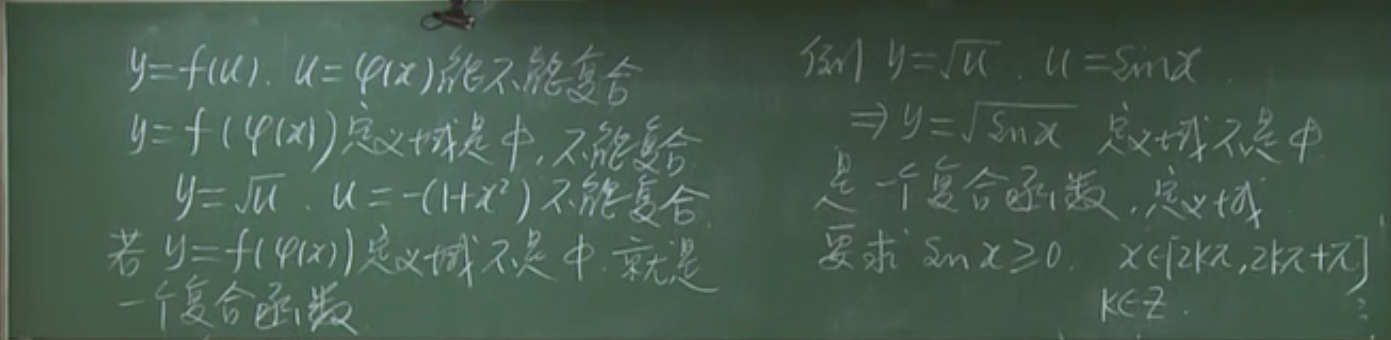 y=f(u). u=φ(x)能不能复合
y=f(φ(x))定义域是φ,不能复合
y=√u . u=-(1+x²)不能复合
若 y=f(φ(x))定义域不是φ.就是
一个复合函数
例 y=√u . u=sinx.
⇒y=√sinx 定义域不是φ
是一个复合函数,定义域
要求 sinx≥0. x∈[2kπ,2kπ+π]
k∈Z.